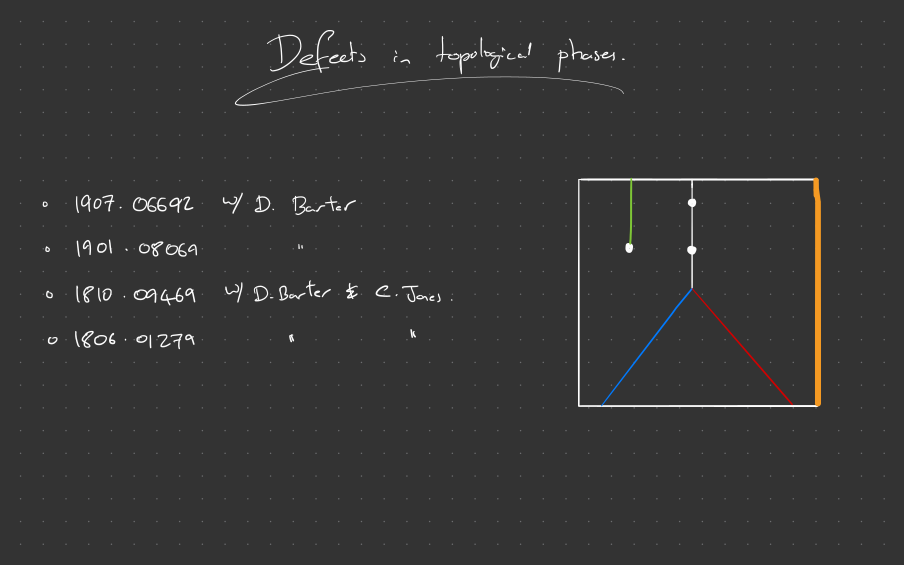 Defects in topological phases.
1907.06692 w/ D. Barter
1901.08069 "
1810.09469 w/ D. Barter & C. Jones.
1806.01279 " "